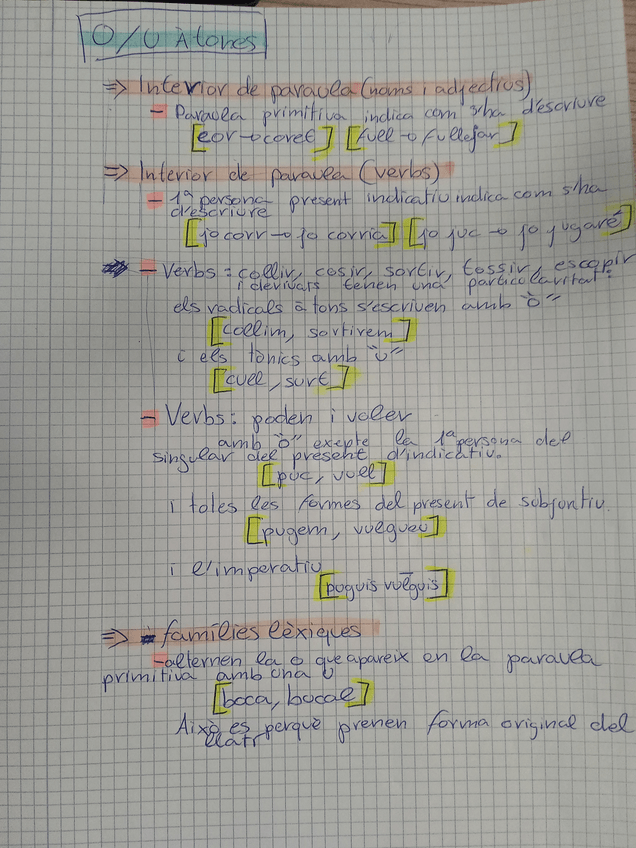 O/U Àtones
⇒ Interior de paraula (noms i adjectius)
- Paraula primitiva indica com s'ha d'escriure
[cor → coret] [full → fullejar]
⇒ Interior de paraula (verbs)
- 1ª persona present indicatiu indica com s'ha
d'escriure
[jo corr → jo corria] [jo juc → jo jugaré]
- Verbs: collir, cosir, sortir, tossir, escopir
i derivats tenen una particolaritat:
els radicals àtons s'escriven amb "o"
[collim, sortirem]
i els tònics amb "u"
[cull, surt]
- Verbs: poden i voler
amb "o" exepte la 1ª persona del
singular del present d'indicatiu.
[puc, vull]
i totes les formes del present de subjontiu.
[pugem, vulgueu]
i l'imperatiu
[puguis vulguis]
⇒ famílies lèxiques
- alternen la o que apareix en la paraula
primitiva amb una u
[boca, bucal]
Això es perquè prenen forma original del
llatí